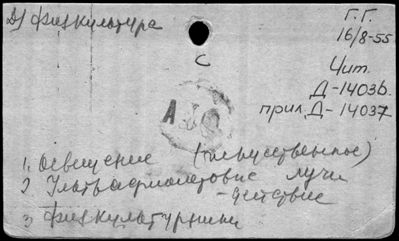 Д) Физкультура
Г.Г.
16/8-55
С
Чит.
Д-14036.
прил. Д-14037
А
1. освещение (искусственное)
2 Ультрафиолетовые лучи
- действие
3) Физкультурники